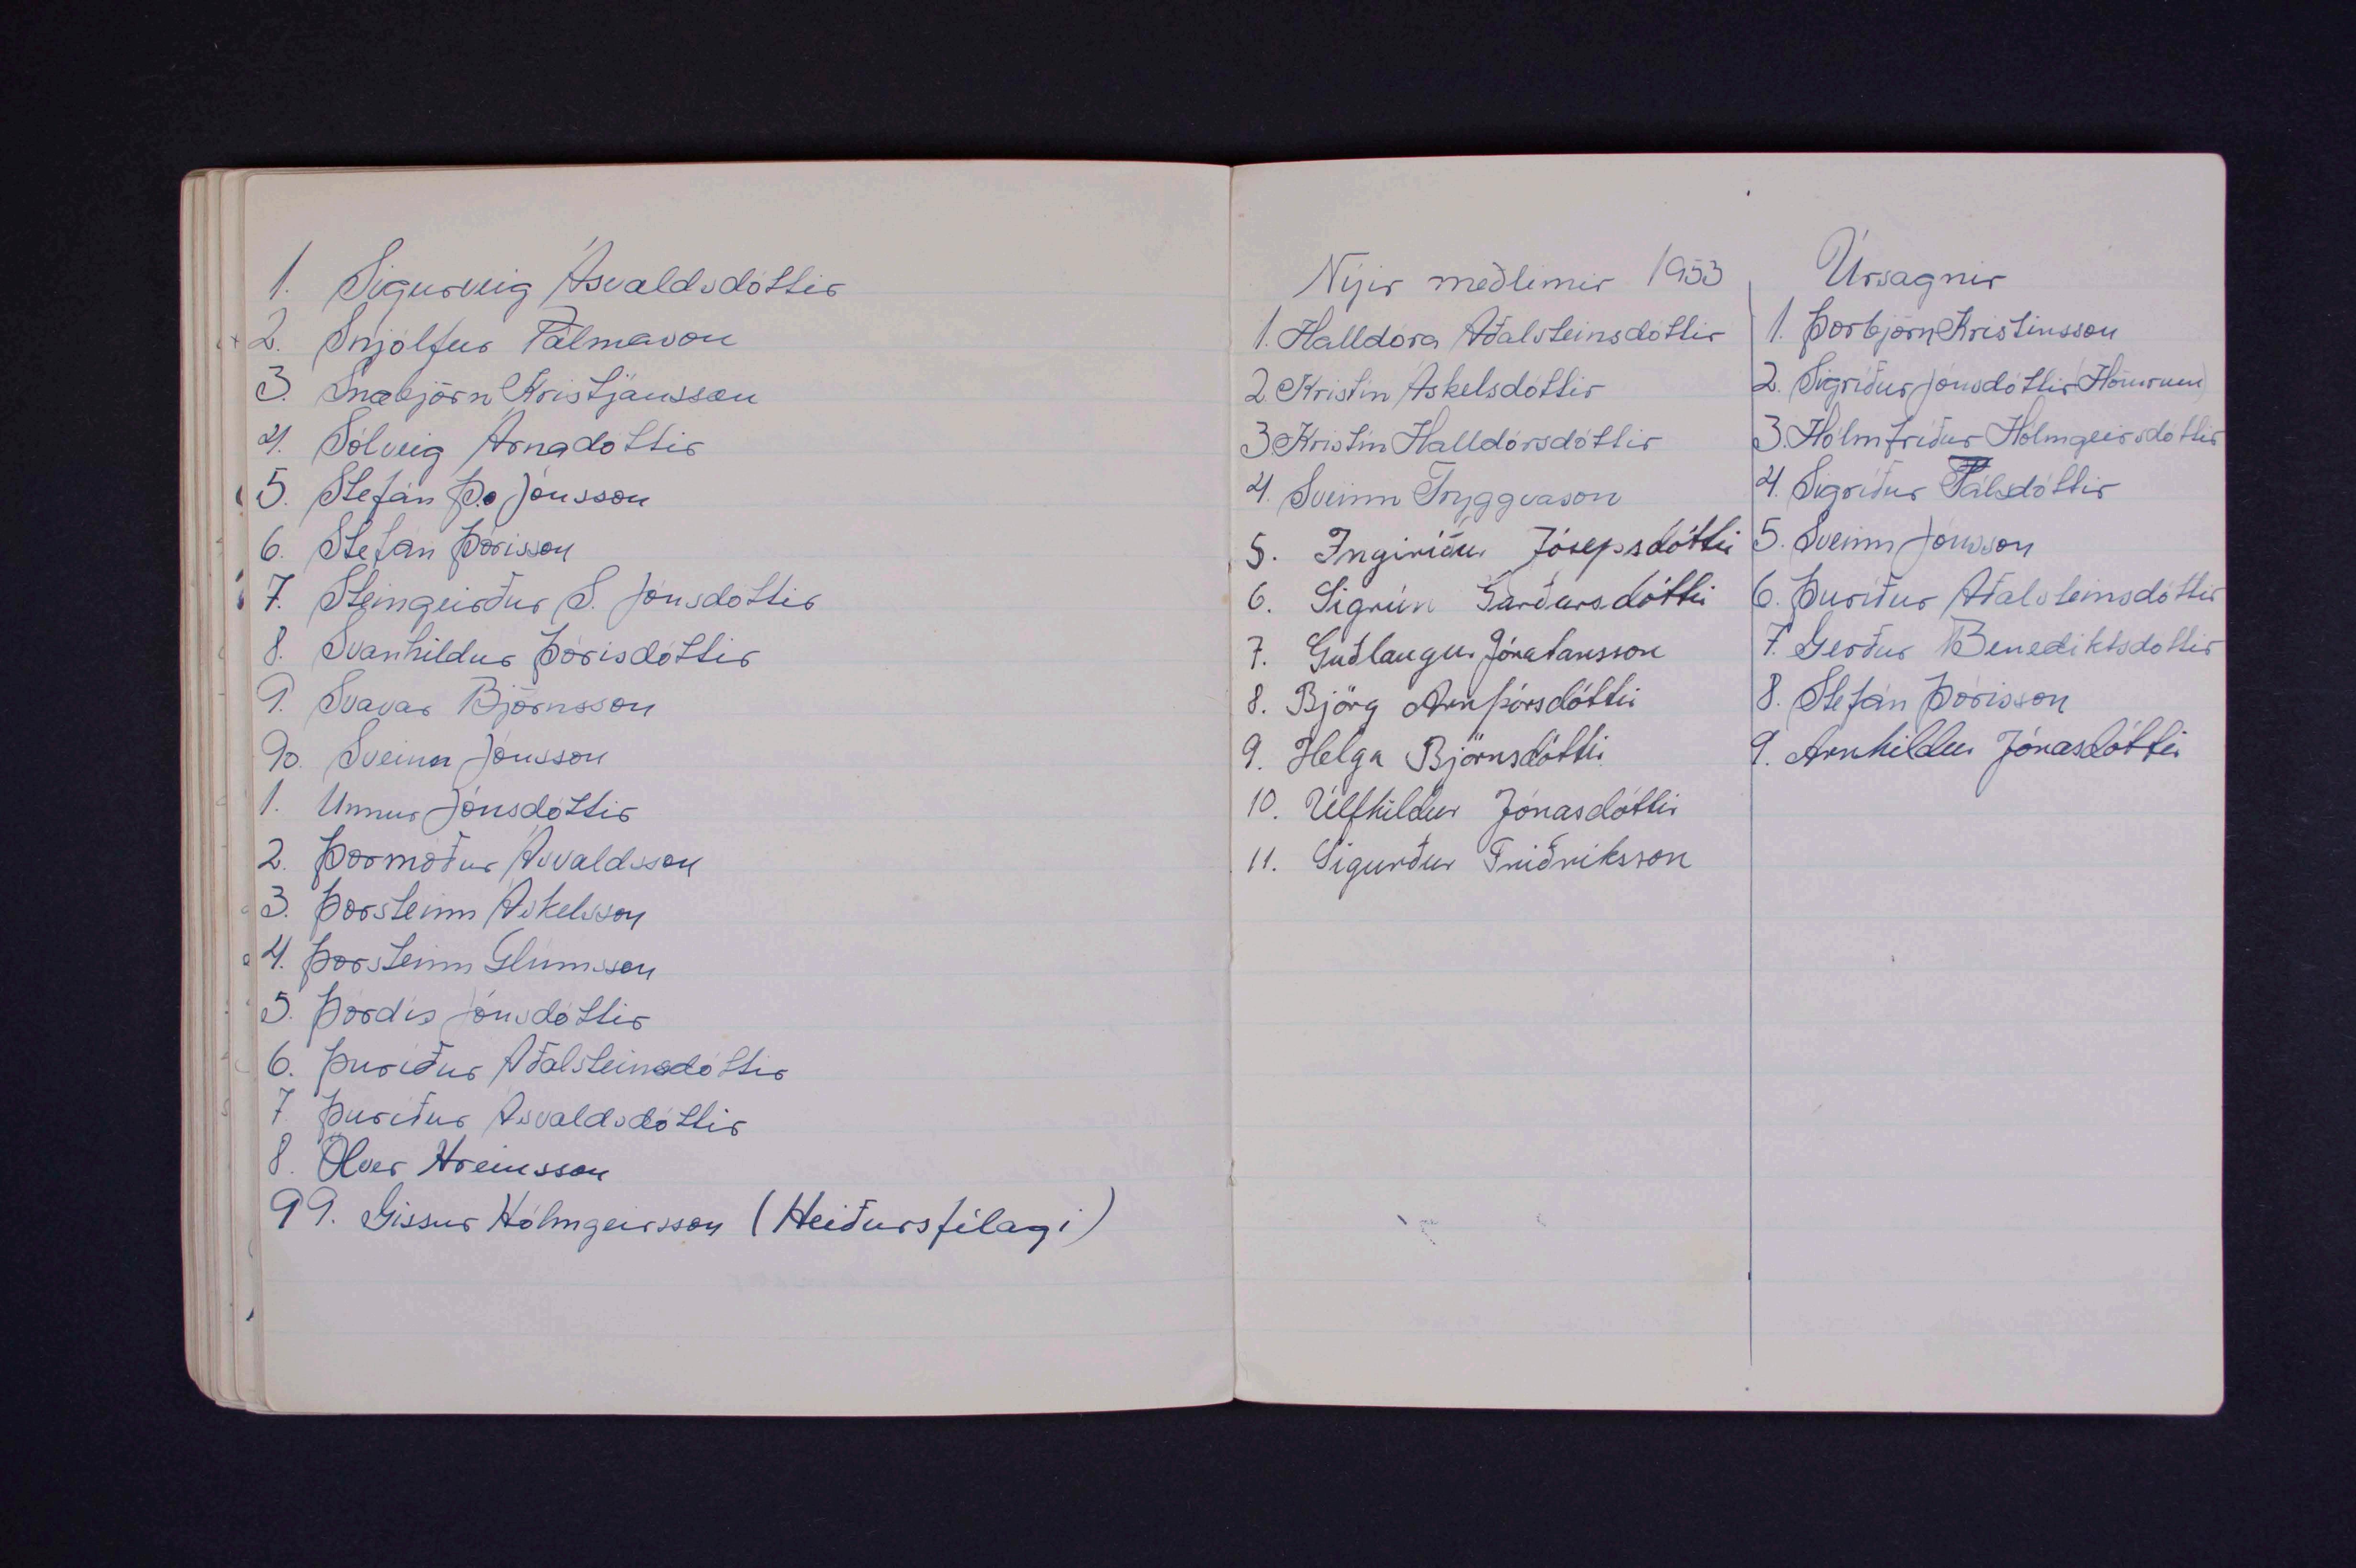 1. Sigurveig Ásvaldsdóttir
2. Snjólfur Pálmason
3. Snæbjörn Kristjánsson
4. Sólveig Árnadóttir
5. Stefán Þ. Jónsson
6. Stefán Þórisson
7. Steingerður S. Jónsdóttir
8. Svanhildur Þórisdóttir
9. Svavar Björnsson
90. Sveinn Jónsson
1. Unnur Jónsdóttir
2. Þormóður Ásvaldsson
3. Þorsteinn Áskelsson
4. Þorsteinn Glúmsson
5. Þórdís Jónsdóttir
6. Þuríður Aðalsteinsdóttir
7. Þuríður Ásvaldsdóttir
8. Ölver Hreinsson
99. Gissur Hólmgeirsson (Heiðursfélagi)
Nýir meðlimir 1953
1. Halldóra Aðalsteinsdóttir
2. Kristín Áskelsdóttir
3. Kristín Halldórsdóttir
4. Sveinn Tryggvason
5. Ingiríður Jósepsdóttir
6. Sigrún Garðarsdóttir
7. Guðlaugur Jónatansson
8. Björg Arnþórsdóttir
9. Helga Björnsdóttir
10. Úlfhildur Jónasdóttir
11. Sigurður Friðriksson
Úrsagnir
1. Þorbjörn Kristinsson
2. Sigríður Jónsdóttir (Hömrum)
3. Hólmfríður Hólmgeirsdóttir
4. Sigríður Pálsdóttir
5. Sveinn Jónsson
6. Þuríður Aðalsteinsdóttir
7. Gerður Benediktsdóttir
8. Stefán Þórisson
9. Arnhildur Jónasdóttir